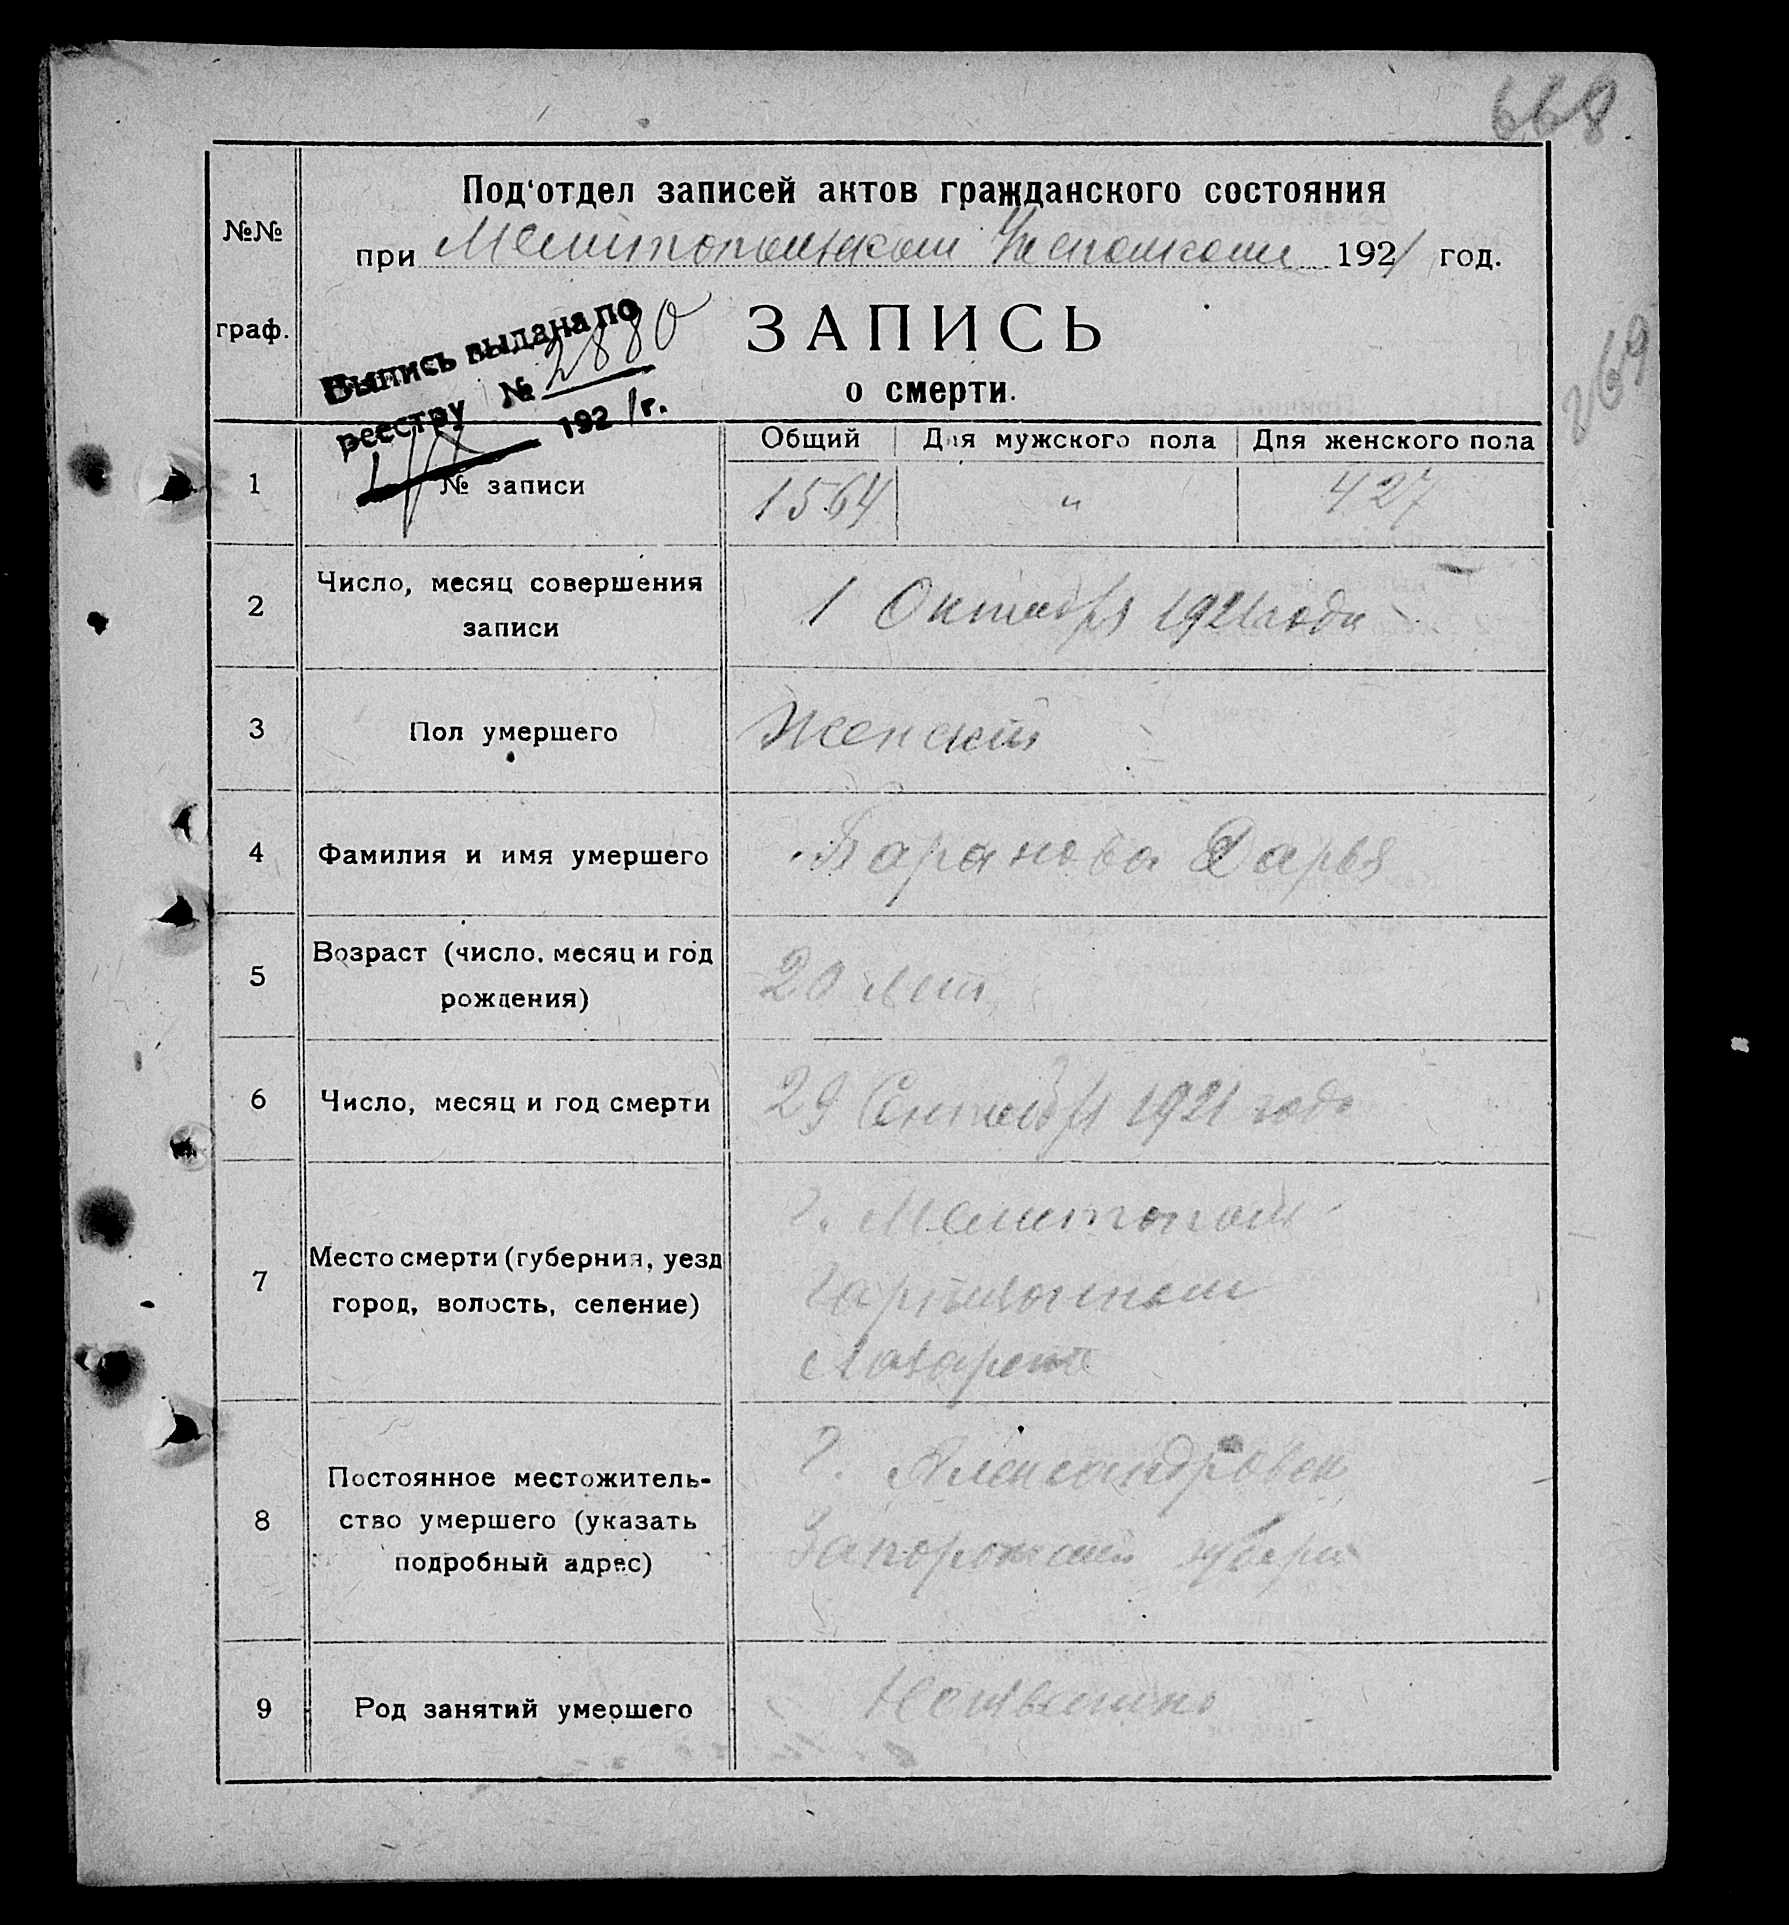 668
Под‘отдел записей актов гражданского состояния
при Мелитопольском Уисполкоме 1921 год.
№№
граф.
269
ЗАПИСЬ
о смерти.
Выпись выдана по
реестру № 2880
1921 г.
Общий Для мужского пола Для женского пола
1 № записи 1564 „ 427
2 Число, месяц совершения
записи
1 Октября 1921 года
3 Пол умершего Женский
4 Фамилия и имя умершего Баранова Дарья
5 Возраст (число, месяц и год
рождения)
20 лет
6 Число, месяц и год смерти 29 Сентября 1921 года
7 Место смерти (губерния, уезд
город, волость, селение)
г. Мелитополь
Лазарете
8 Постоянное местожитель-
ство умершего (указать
подробный адрес)
г. Александровск
Запорожской губерн
9 Род занятий умершего Неизвестно